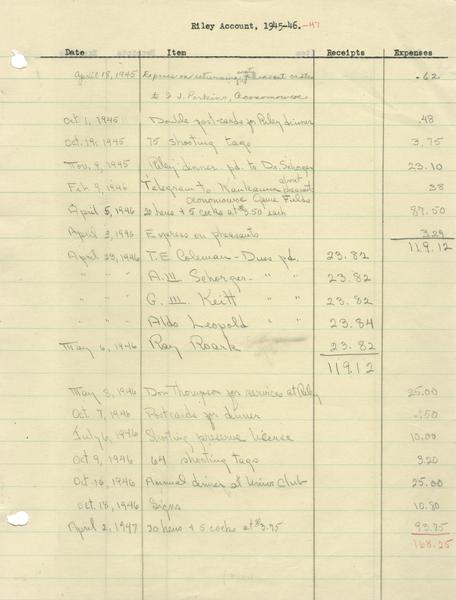 Riley Account, 1945-46.-47
Date Item Receipts Expenses
April 18, 1945 Express on returning pheasant crates .62
to J. Perkins, Oconomowoc
Oct 1, 1945 Double post-cards for Riley dinner .48
Oct. 19, 1945 75 shooting tags 3.75
Nov. 9, 1945 Riley dinner pd. to Dr. Schorger 23.10
Feb 9, 1946 Telegram to Kankauma about pheasants 38
Oconomowoc Game Fields
April 5, 1946 20 hens & 5 cocks at $3.50 each 87.50
April 3, 1946 Express on pheasants 3.29
119.12
April 23, 1946 T.E. Coleman - Dues pd. 23.82
" " " A.W. Schorger - " " 23.82
" " " G.W. Keitt " " 23.82
" " " Aldo Leopold " " 23.84
May 6, 1946 Ray Roark 23.82
119.12
May 8, 1946 Don Thompson for services at Riley 25.00
Oct 7, 1946 Postcards for dinner .50
July 6, 1946 Shooting preserve license 10.00
Oct 9, 1946 64 shooting tags 3.20
Oct 16, 1946 Annual dinner at Univ Club 25.00
Oct. 18, 1946 Signs 10.80
April 2, 1947 20 hens & 5 cocks at $3.75 93.75
168.25